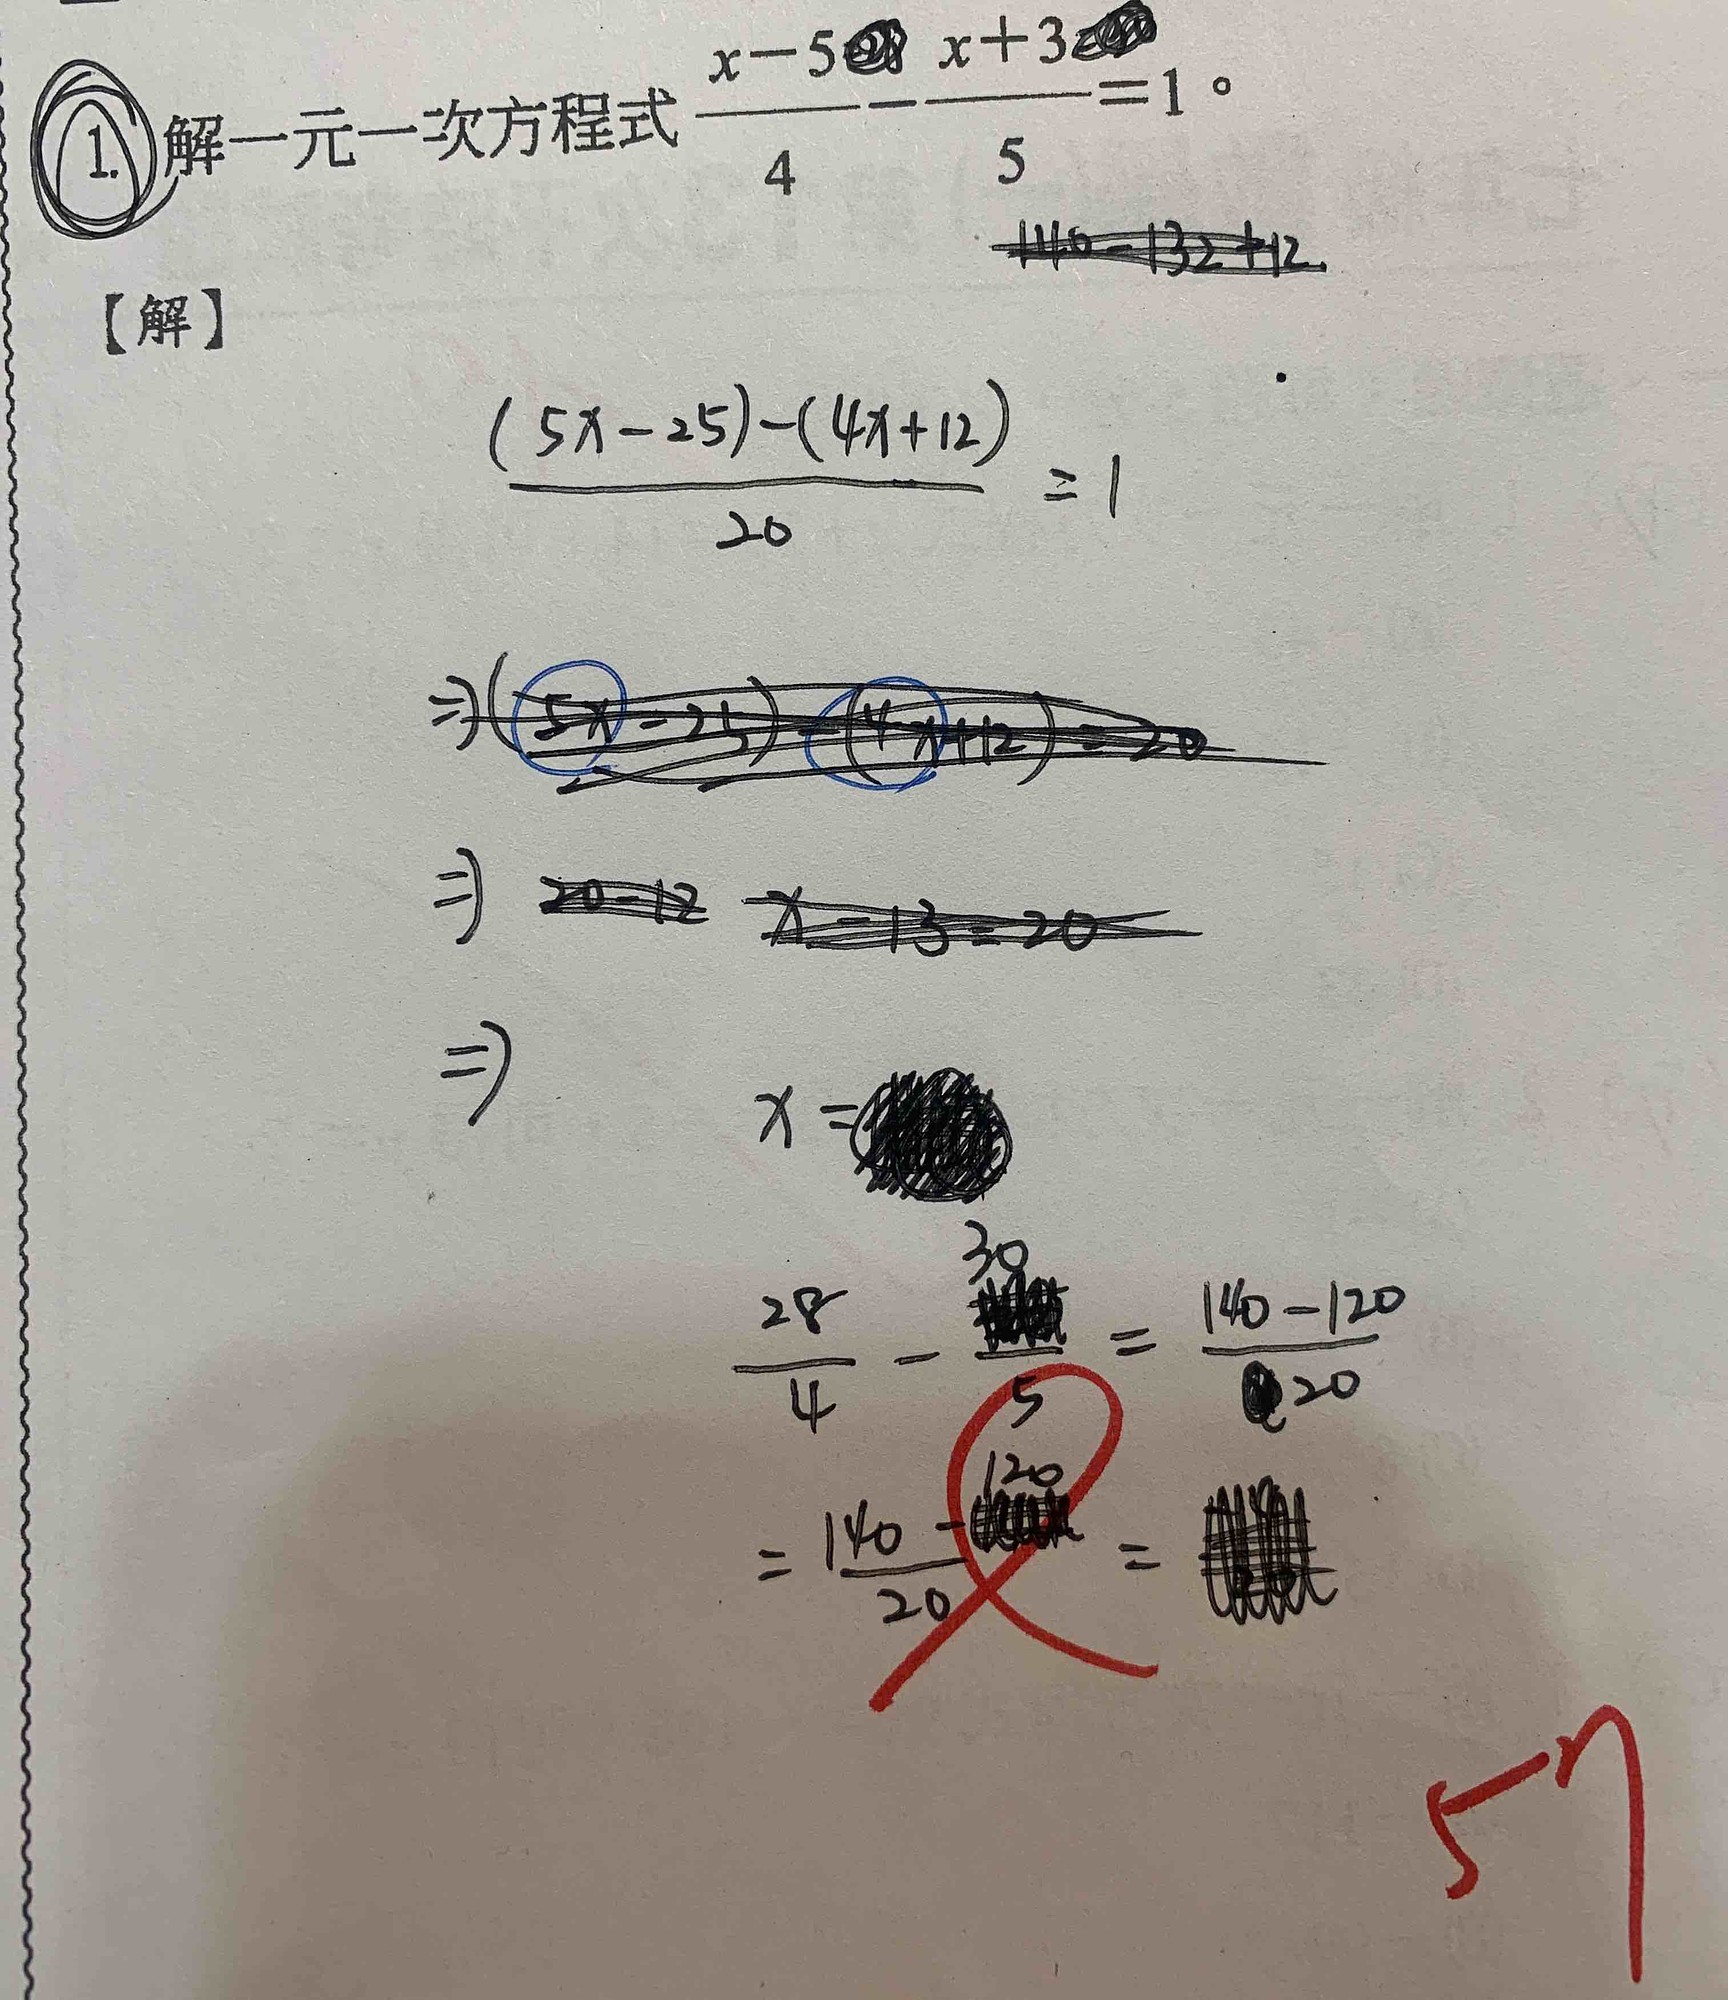 1. 解一元一次方程式 (x-5)/4 - (x+3)/5 = 1。
140-132+12
【解】
((5x-25)-(4x+12))/20 = 1
⇒ (5x-25)-(4x+12)=20
⇒ 20-12 x-13=20
⇒
x=
28/4 - 30/5 = (140-120)/20
= (140-120)/20 =
57